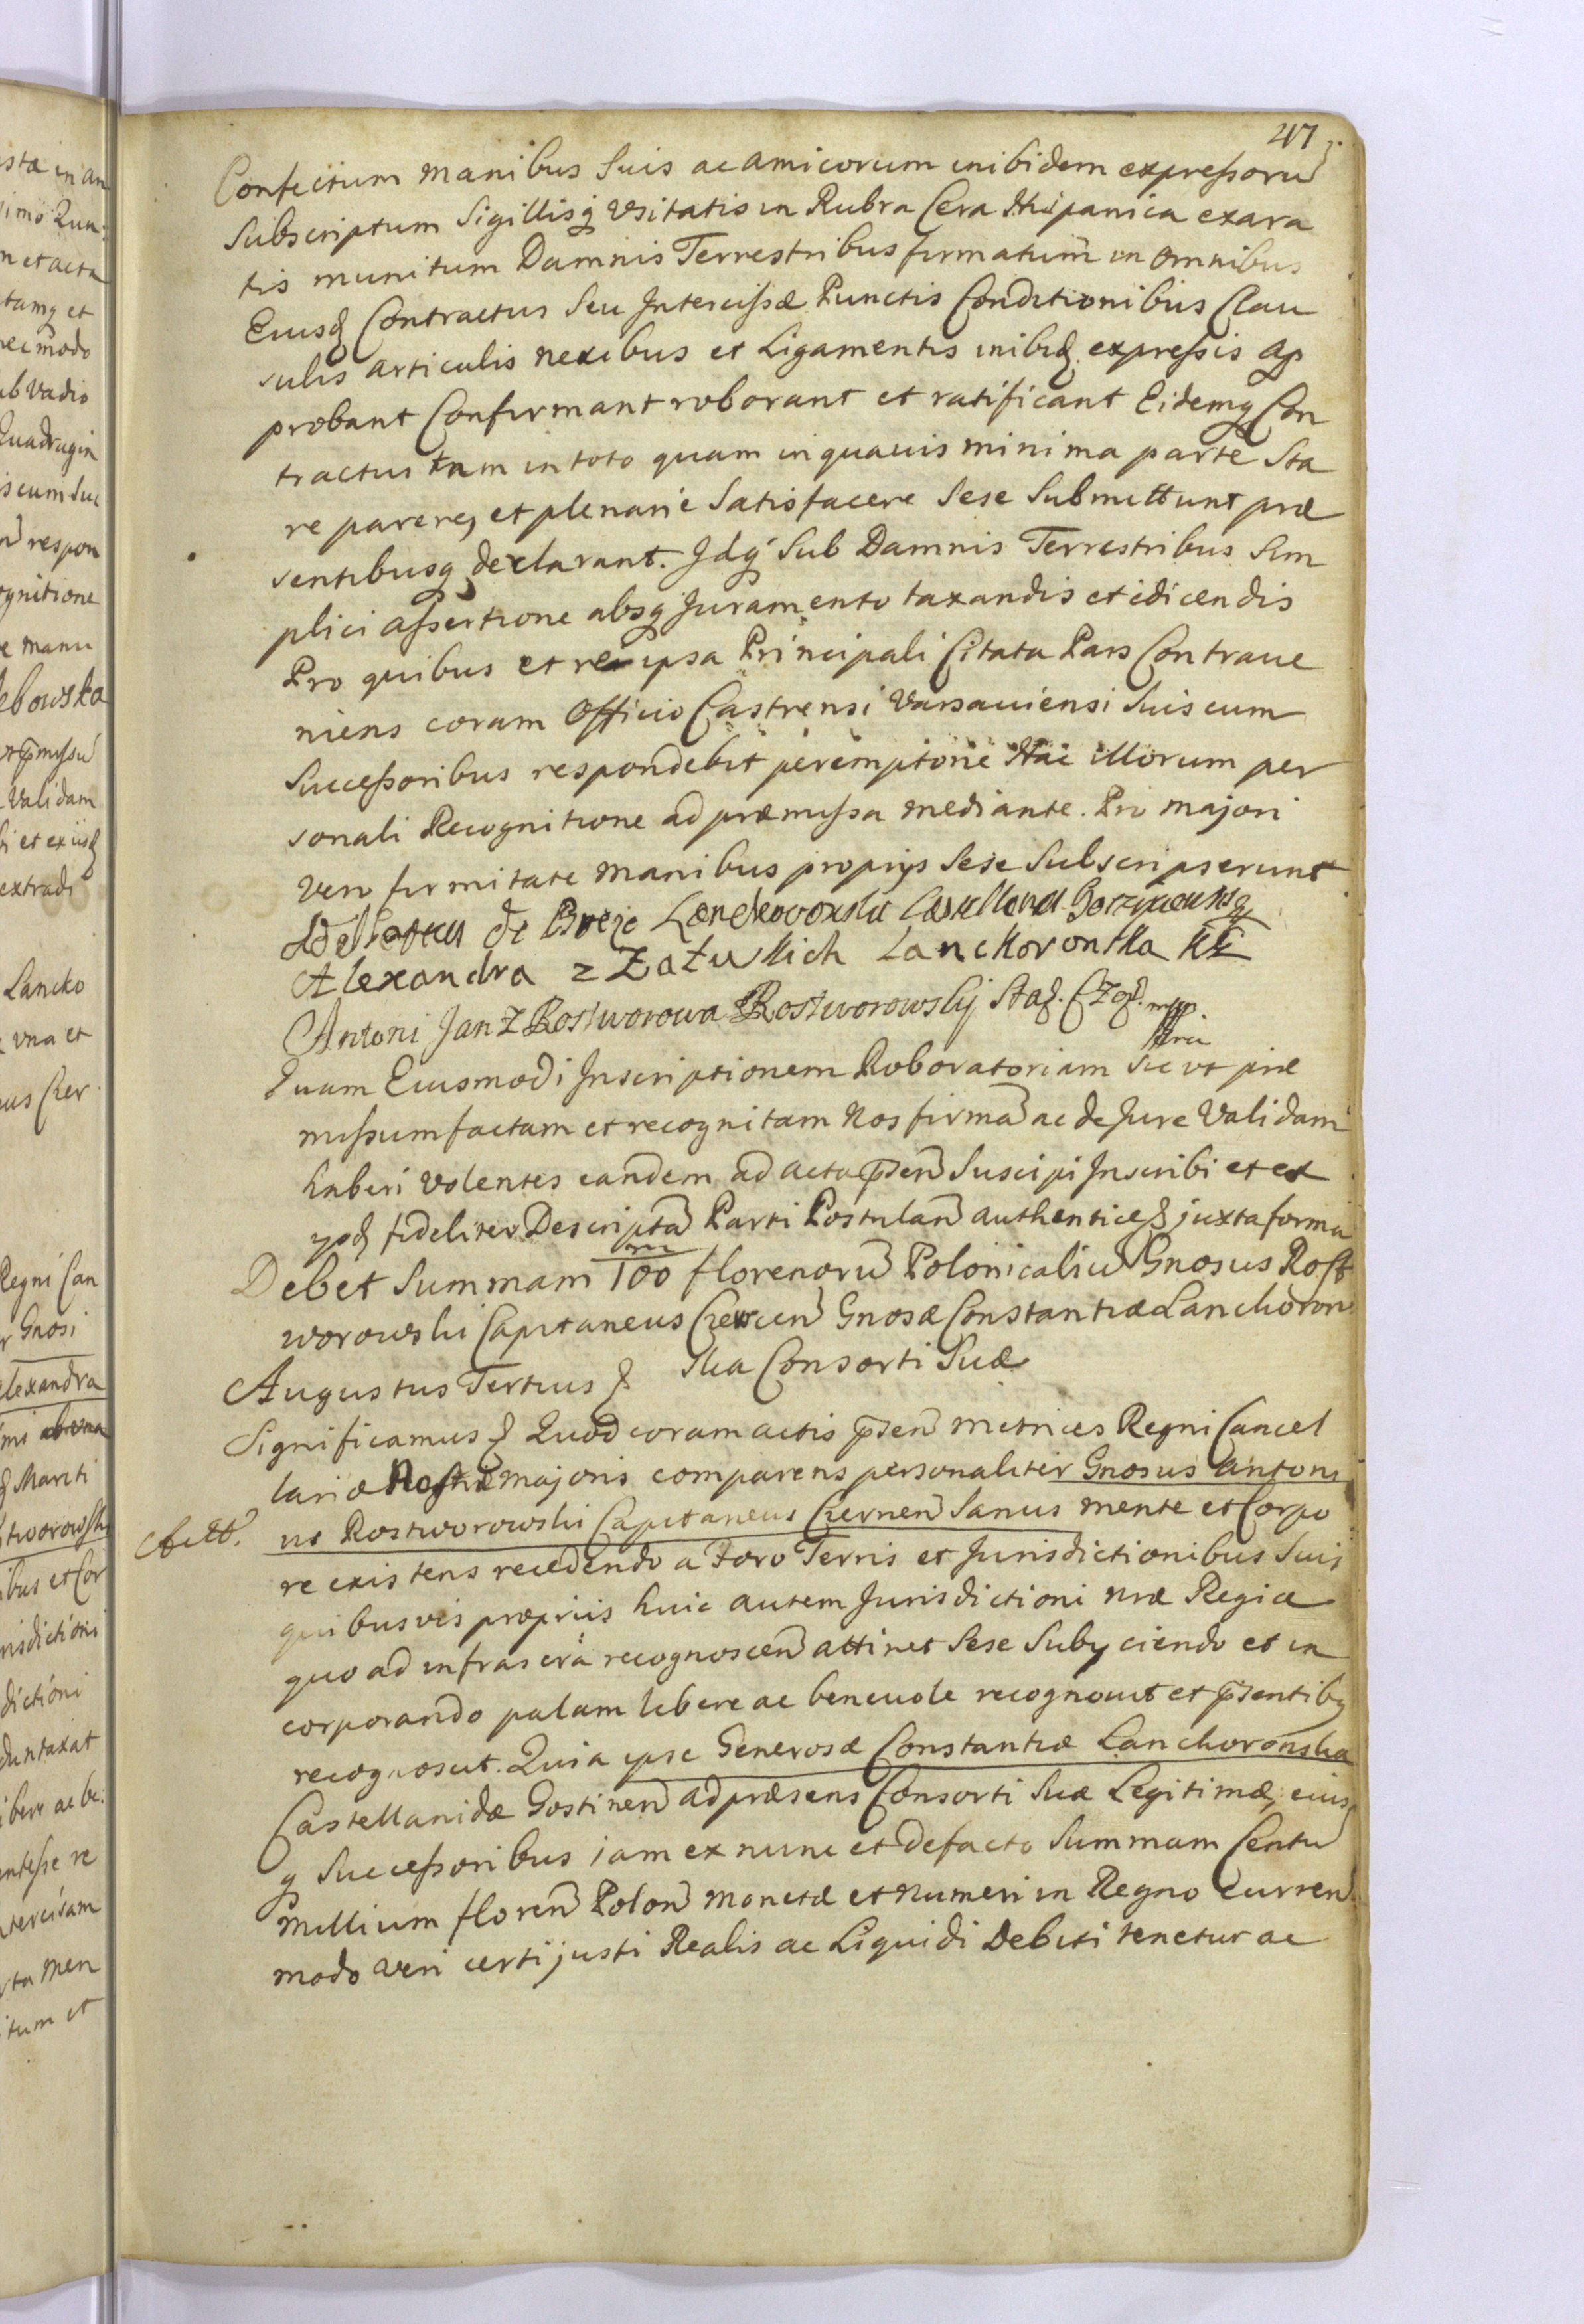 47
Confectum manibus Suis ac amicorum inibidem expressorū
Subscriptum Sigillisq usitatis in Rubra Cera Hispanica exara
tis munitum Damnis Terrestribus firmatum in omnibus
Eiusd Contractus Seu Intercissæ Punctis Conditionibus Clau
sulis articulis nexibus et Ligamentis inibid. expressis ap
probant Confirmant roborant et ratificant Eidemq Con
tractus tam in toto quam in quavis minima parte Sta
re parere, et plenarie Satisfacere Sese Submittunt præ
sentibusq declarant. Idq Sub Damnis Terrestribus Sim
plici assertione absq Juramento taxandis et edicendis
Pro quibus et re ipsa Principali Citata Pars Contrave
niens coram Officio Castrensi Varsaviensi Suis cum
Successoribus respondebit peremptorie Hac illorum per
sonali Recognitione ad præmissa mediante. Pro majori
vero firmitate manibus proprijs Sese Subscripserunt
de Brezie
Alexandra z Załuskich Lanckoronska KG
Antoni Jan z Rostworowa Rostworowskij Sta. mpp
Quam Eiusmodi Inscriptionem Roboratoriam Sic ut præ
missum factam et recognitam Nos firmā ac de Jure Validam
haberi Volentes eandem ad acta p̄sen Suscipi Inscribi et ex
ysd fideliter Descriptā Parti Postulan authentice juxta formā
Debet Summam 100 m florenorū Polonicaliū Gnosus Rost
worowski Capitaneus Gnosæ Constantiæ Lanckoron
ska Consorti Suæ
Augustus Tertius
Significamus Quod coram actis p̄sen Metrices Regni Cancel
lariæ Nostræ majoris comparens personaliter Gnosus Antoni
us Rostworowski Capitaneus Sanus mente et Corpo
re existens recedendo a Foro Terris et Jurisdictionibus Suis
quibusvis proprijs huic autem Jurisdictioni nræ Regiæ
quo ad infrascra recognoscen attinet Sese Subyciendo et in
corporando palam libere ac benevole recognovit et p̄sentibq
recognoscit. Quia ipse Generosæ Constantiæ Lanckoronska
Castellanidæ Gostinen ad præsens Consorti Suæ Legitimæ, eius
q Successoribus iam ex nunc et defacto Summam Centū
Millium floren Polon Monetæ et Numeri in Regno Curren
modo veri certi justi Realis ac Liquidi Debiti tenetur ac